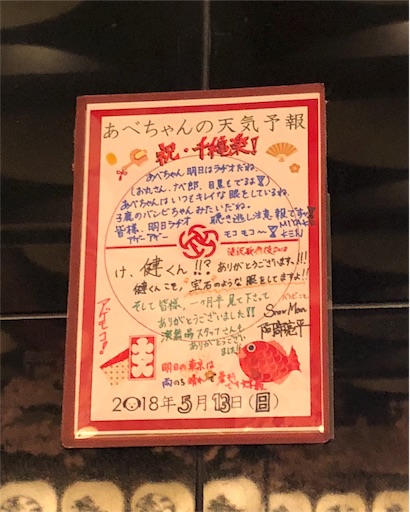 あべちゃんの天気予報
祝・千穐楽!
あべちゃん明日はラヂオだね。
あべちゃんはいつもキレイな眼をしているね。
子鹿のバンビちゃんみたいだね。
皆様、明日ラヂオ 聴き逃し注意報ですッ!
アゲーアゲー モコモコ〜! MIYAKE KEN
滝沢歌舞伎2018
け、健くん!!? ありがとうございます、!!!
健くんこそ、宝石のような眼をしてますよ!!
そして皆様、一ヶ月半見て下さって
ありがとうございました!!
演舞場スタッフさんも
ありがとうござい
ました
Snow Man
阿部亮平
アゲモコ
大入
明日の東京は
雨のち晴れ
2018年5月13日(日)